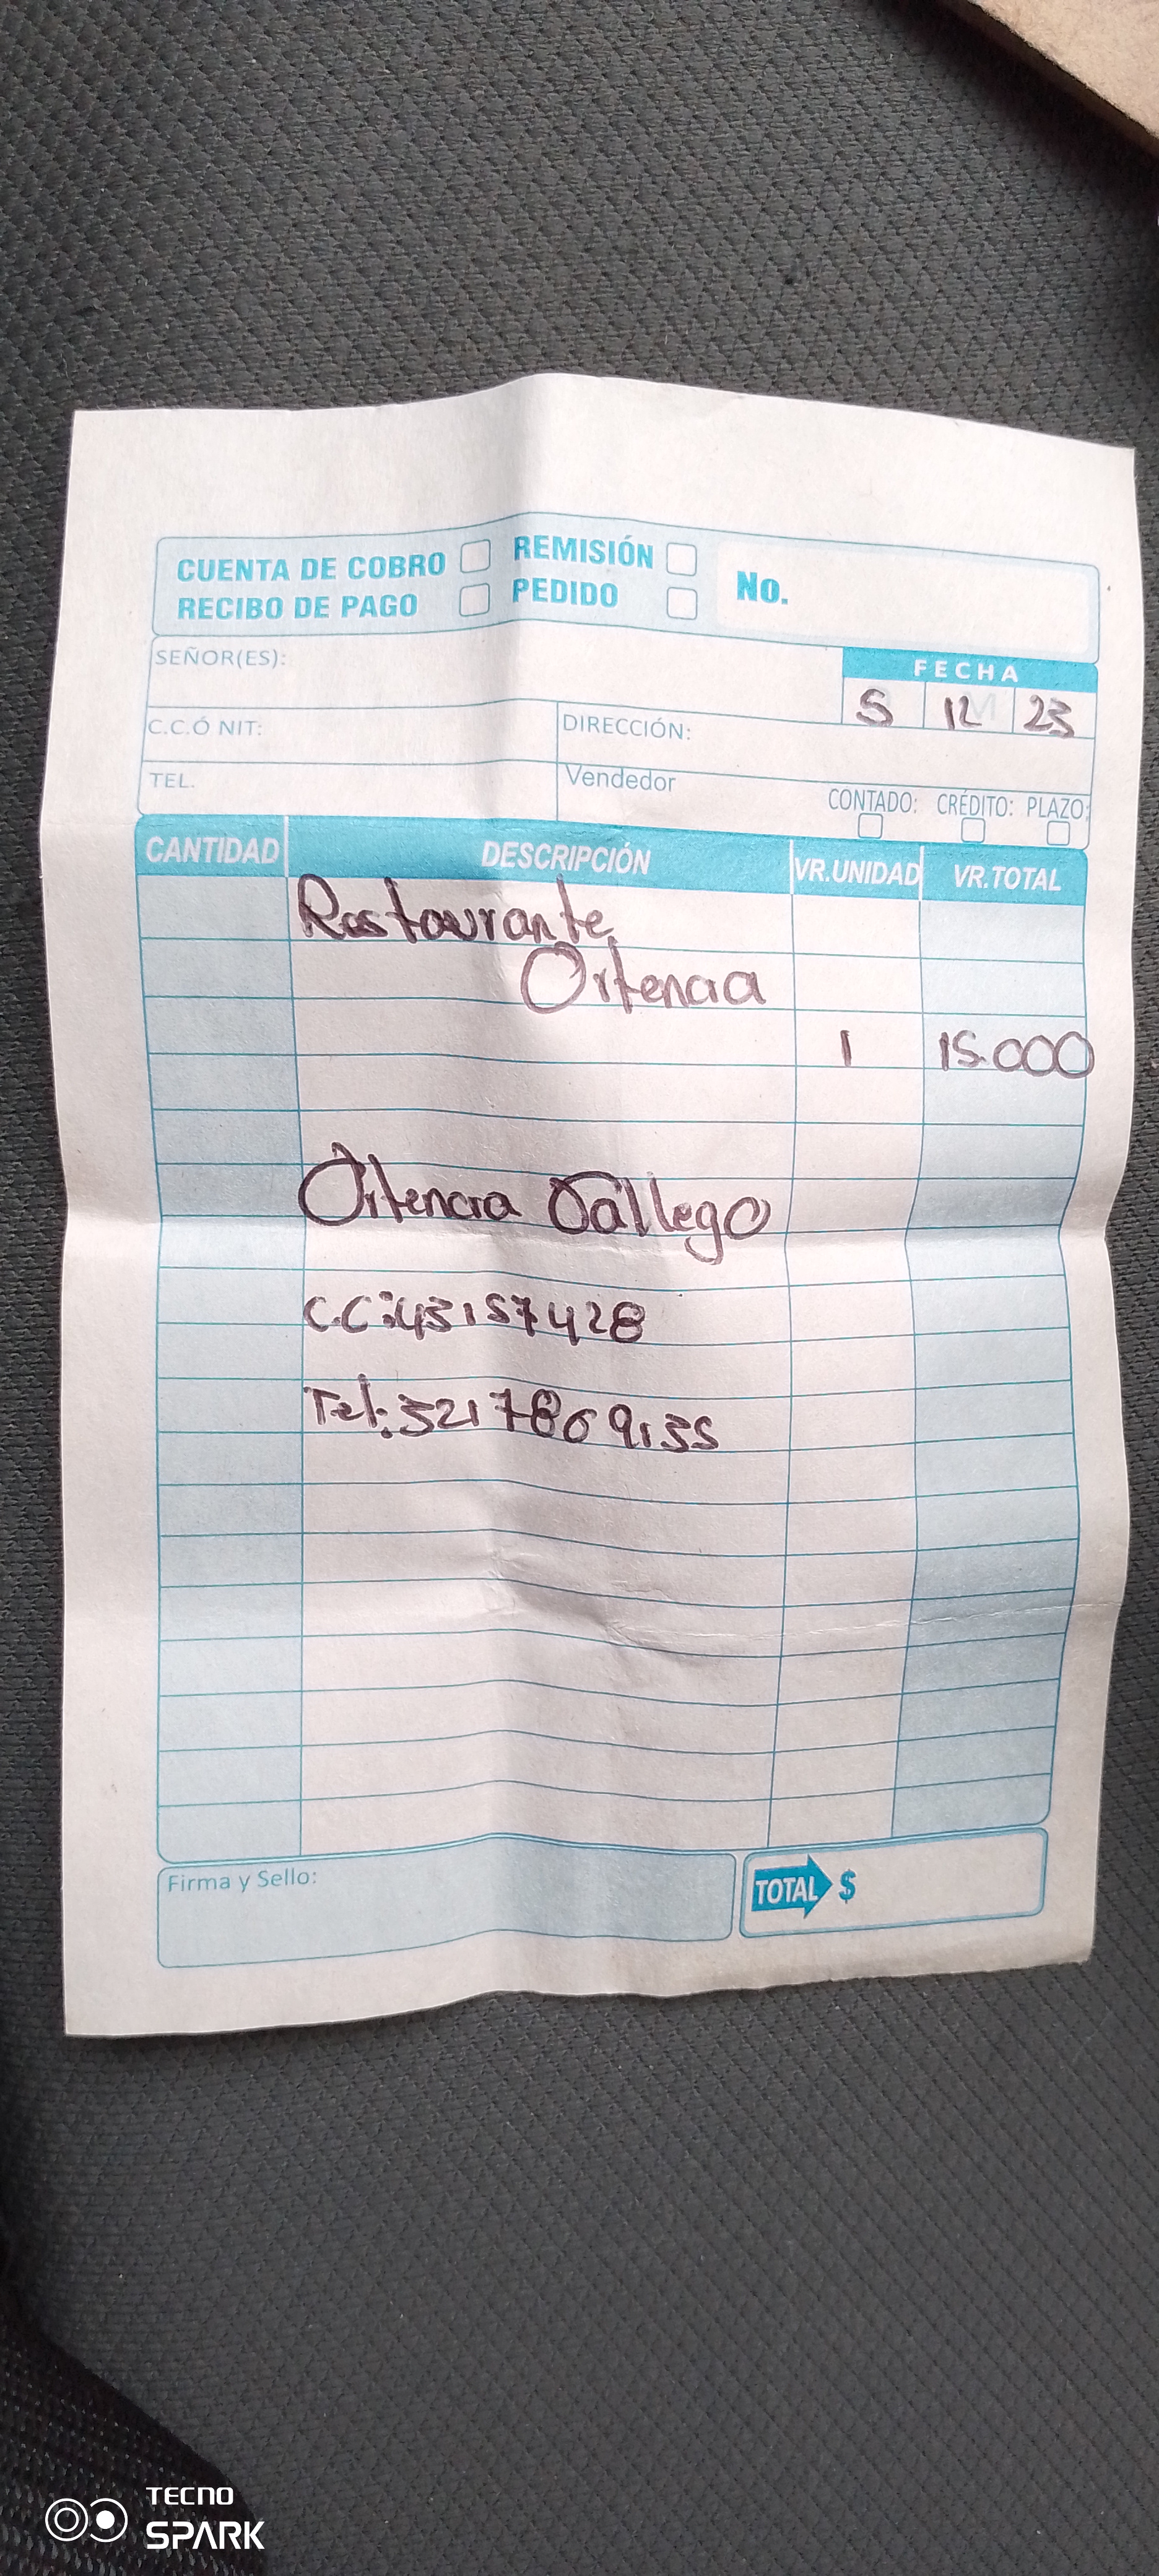 CUENTA DE COBRO REMISIÓN No.
RECIBO DE PAGO PEDIDO
SEÑOR(ES):
FECHA
5 12 23
C.C.Ó NIT: DIRECCIÓN:
TEL. Vendedor
CONTADO: CRÉDITO: PLAZO:
CANTIDAD DESCRIPCIÓN VR.UNIDAD VR.TOTAL
Restaurante
Ortencia
1 15.000
Ortencia Gallego
C.C:43157428
Tel:3217869135
Firma y Sello:
TOTAL $
TECNO
SPARK